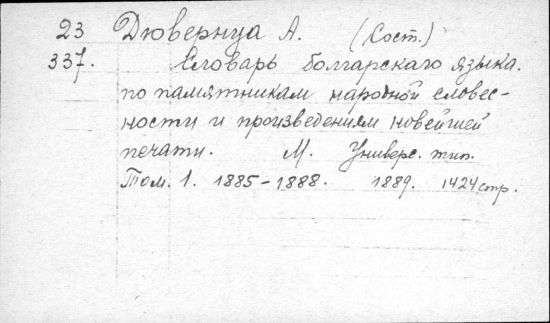 23 Дювернуа А. (Сост.)
337. Словарь болгарскаго языка.
по памятникам народной словес-
ности и произведениям новейшей
печати. М. Универс. тип.
Том. 1. 1885-1888. 1889. 1424 стр.